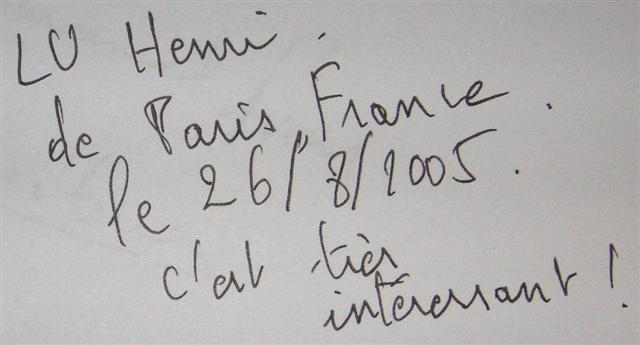 LU Henri.
de Paris, France.
le 26/8/2005.
c'est très
intéressant !